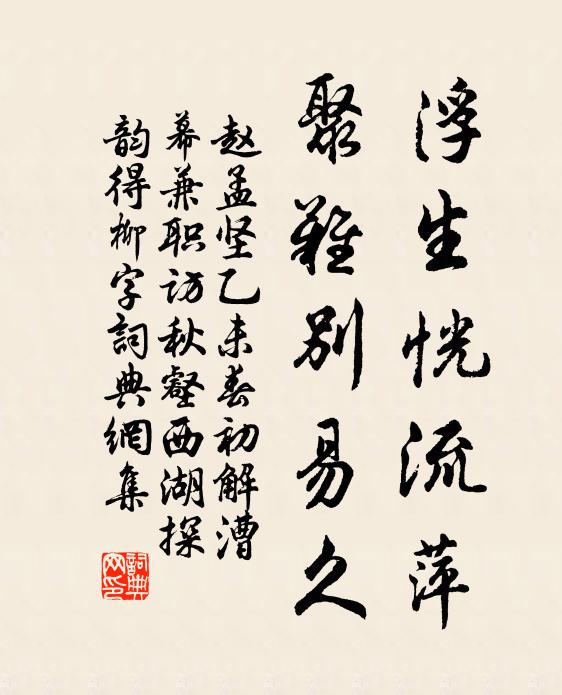 浮生恍流萍
聚難别易久
赵孟坚乙未春初解漕
幕兼职访秋壑西湖探
韵得柳字詞典網集
詞典网印